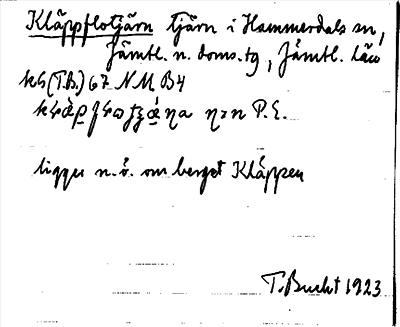 Kläppflotjärn tjärn i Hammerdals sn,
Jämtl. n. doms. tg, Jämtl. län
(T.B.) 67 NM B4
P. E.
ligger n. ö. om berget Kläppen
T. Bucht 1923